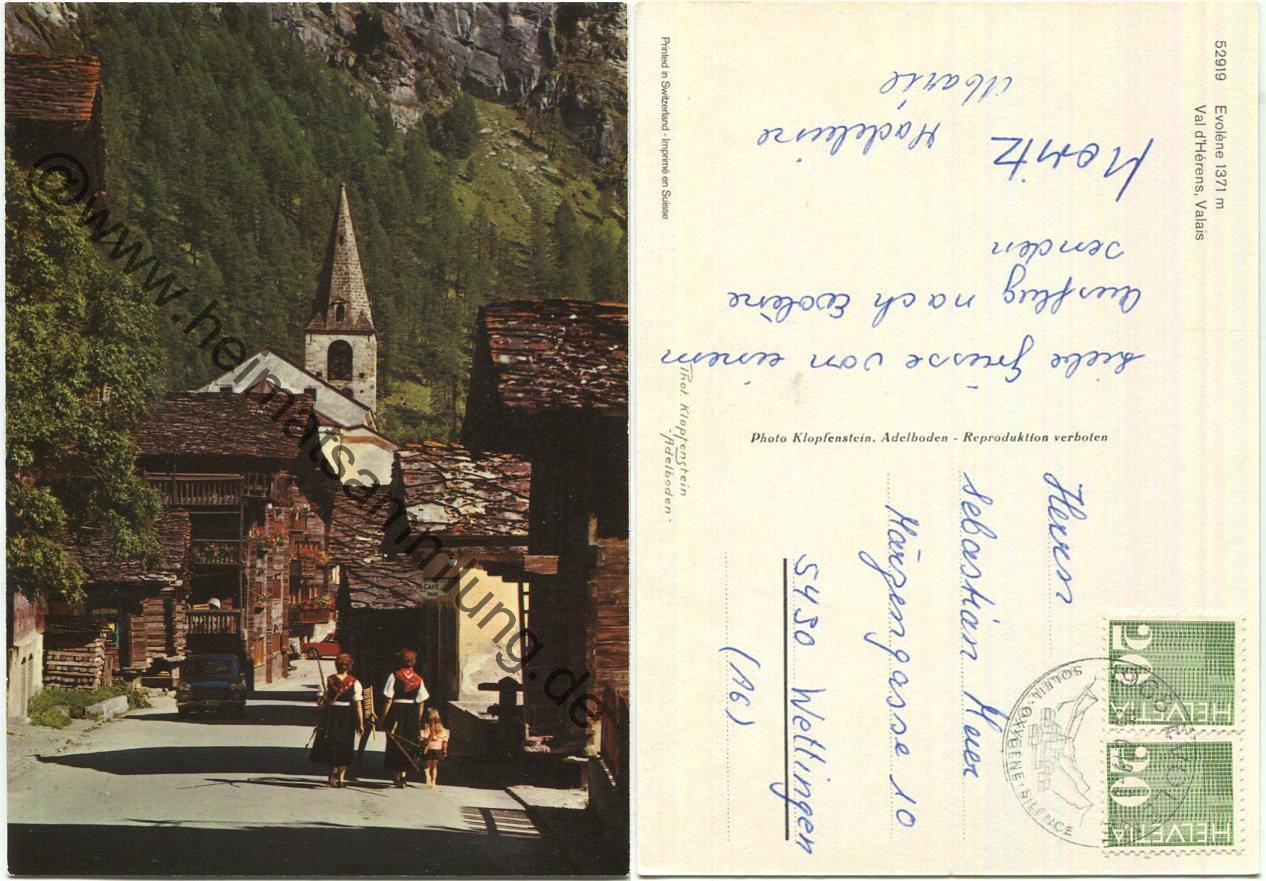 ©www.heimatsammlung.de
CAFÉ
52919 Evolène 1371 m
Val d'Hérens, Valais
Printed in Switzerland - Imprimé en Suisse
Phot. Klopfenstein
- Adelboden -
Photo Klopfenstein, Adelboden - Reproduktion verboten
Liebe Grüsse von einem
Ausflug nach Evolène
senden
Moritz
Madeleine
Marie
Herrn
Sebastian Meier
Märzengasse 10
5430 Wettingen
(AG)
20
HELVETIA
20
HELVETIA
SOLEIL·OXYGENE·SILENCE